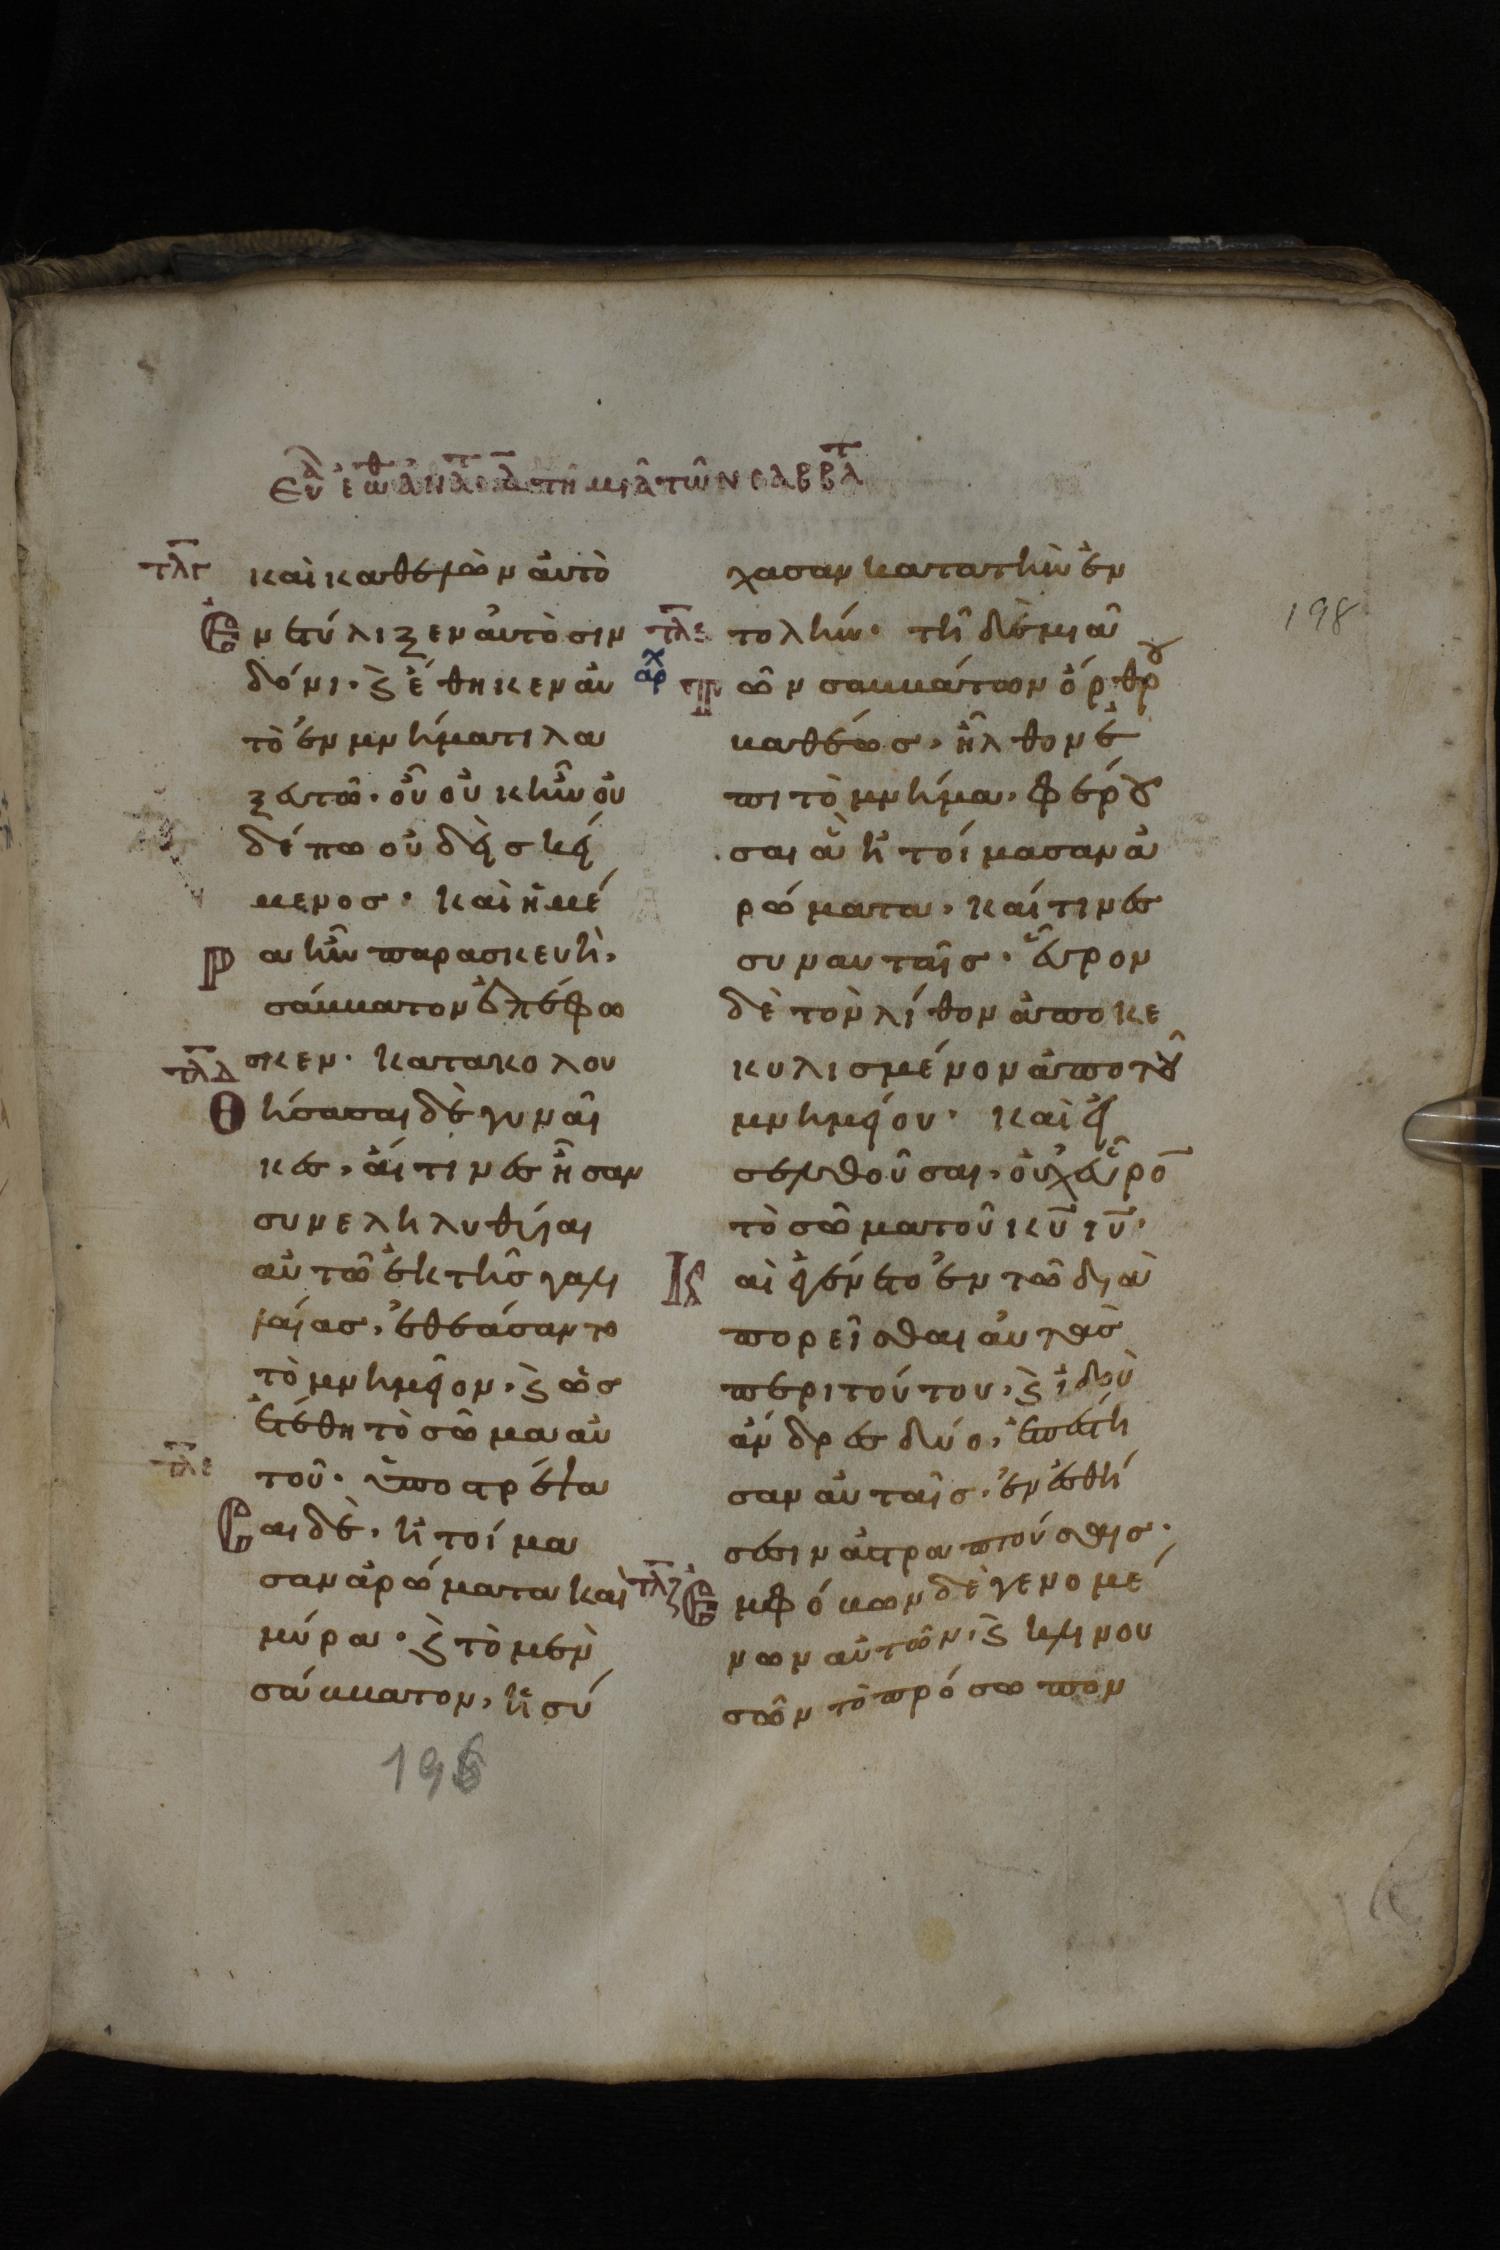 Εὐα ἑωθ ἀνατ δ τῆ μιᾶ τῶν σαββατ
τλγ καὶ καθελὼν αὐτὸ
Ἐνετύλιξεν αὐτὸ σιν
δόνι· ϗ ἔθηκεν αὐ
τὸ ἐν μνήματι λα
ξευτῶ· οὗ οὐκ ἦν οὐ
δέπω οὐδεὶς κεί
μενος· καὶ ἡμέ
Ρα ἦν παρασκευὴ,
σάββατον ἐπέφω
τλδ σκεν· κατακολου
Θήσασαι δὲ γυναῖ
κες, αἵτινες ἦσαν
συνεληλυθυῖαι
αὐτῶ ἐκ τῆς γαλι
λαίας, ἐθεάσαντο
τὸ μνημεῖον, ϗ ὡς
ἐτέθη τὸ σῶμα αὐ
τλε τοῦ· ὑποστρέψα
Σαι δὲ, ἡτοίμα
σαν ἀρώματα καὶ
μύρα· ϗ τὸ μὲν
σάββατον, ἡσύ
χασαν κατα τὴν ἐν
τλϛ τολήν· τῆ δὲ μιᾶ
αρχ Τῶν σαββάτων ὄρθρου
βαθέως, ἦλθον ἐ
πι τὸ μνήμα, φέρου
σαι ἃ ἡτοίμασαν ἀ
ρώματα, καί τινες
συν αυταῖς· εὗρον
δὲ τὸν λίθον ἀποκε
κυλισμένον ἀπο τοῦ
μνημείου· καὶ εἰ
σελθοῦσαι, οὐχ εὗρον
τὸ σῶμα τοῦ κυ ιυ·
Καὶ ἐγένετο ἐν τῶ δια
πορεῖσθαι αὐτὰς
περι τούτου, ϗ ἰδοὺ
ἄνδρες δύο, ἐπέστη
σαν αὐταῖς, ἐν ἐσθή
σεσιν ἀστραπτούσαις·
τλζ Ἐμφόβων δὲ γενομέ
νων αὐτῶν, ϗ κλινου
σῶν τὸ πρόσωπον
198
196